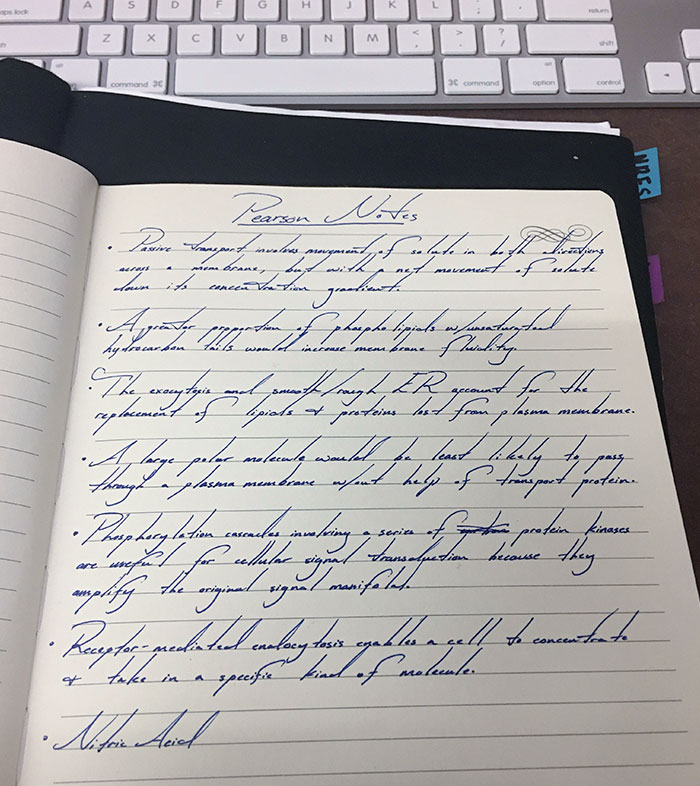 caps lock A S D F G H J K L ; ' return
shift Z X C V B N M < , > . ? / shift
alt command ⌘ ⌘ command alt option control ◄
NOTES
Pearson Notes
• Passive transport involves movement of solute in both directions
across a membrane, but with a net movement of solute
down its concentration gradient.
• A greater proportion of phospholipids w/unsaturated
hydrocarbon tails would increase membrane fluidity.
• The exocytosis and smooth/rough ER account for the
replacement of lipids & proteins lost from plasma membrane.
• A large polar molecule would be least likely to pass
through a plasma membrane w/out help of transport protein.
• Phosphorylation cascades involving a series of protein kinases
are useful for cellular signal transduction because they
amplify the original signal manifold.
• Receptor-mediated endocytosis enables a cell to concentrate
& take in a specific kind of molecule.
• Nitric Acid